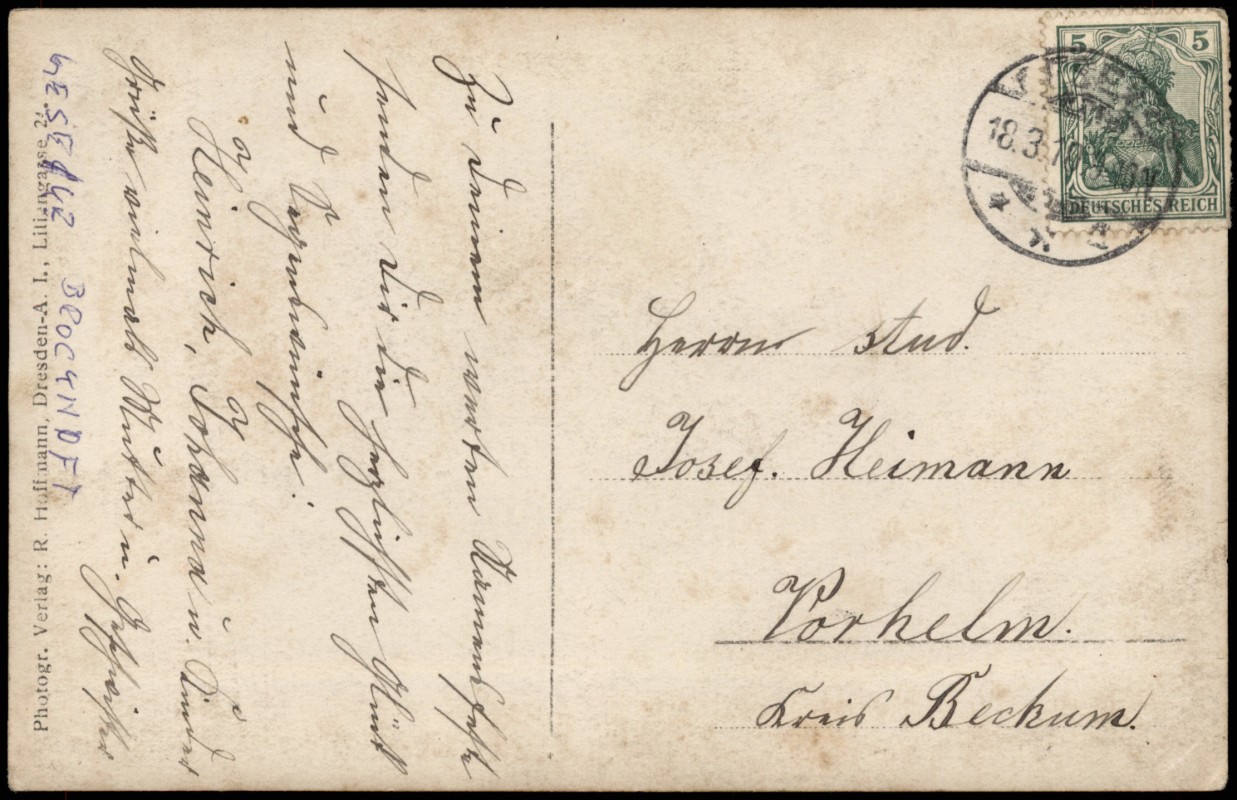 Zu Deinem werten Namensfeste
senden Dir die herzlichsten Glück
und Segenswünsche!
Heinrich, Johanna u. Kinder
Grüße vielmals Mutter u. Geschwister
Photogr. Verlag: R. Hoffmann, Dresden-A. I., Liliengasse 24.
5 5
DEUTSCHES REICH
18.3.
Herrn stud.
Josef. Heimann
Vorhelm.
Kreis Beckum.